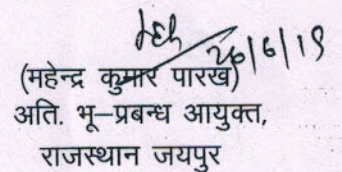 26/6/19
(महेन्द्र कुमार पारख)
अति. भू-प्रबन्ध आयुक्त,
राजस्थान जयपुर